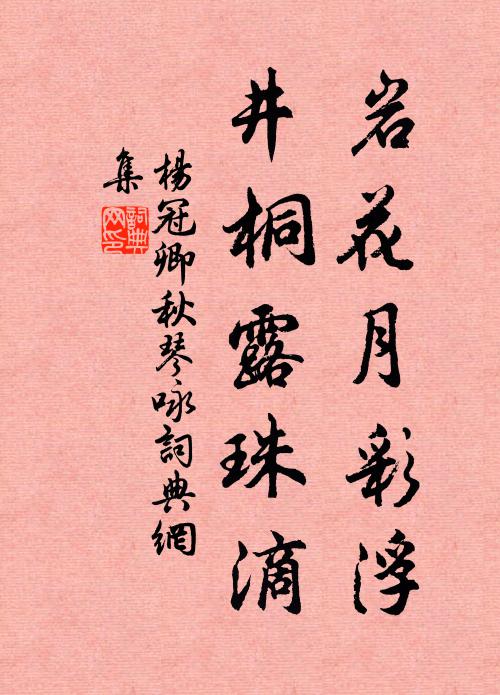 岩花月彩浮
井桐露珠滴
楊冠卿秋琴咏詞典網
集
詞典
网印